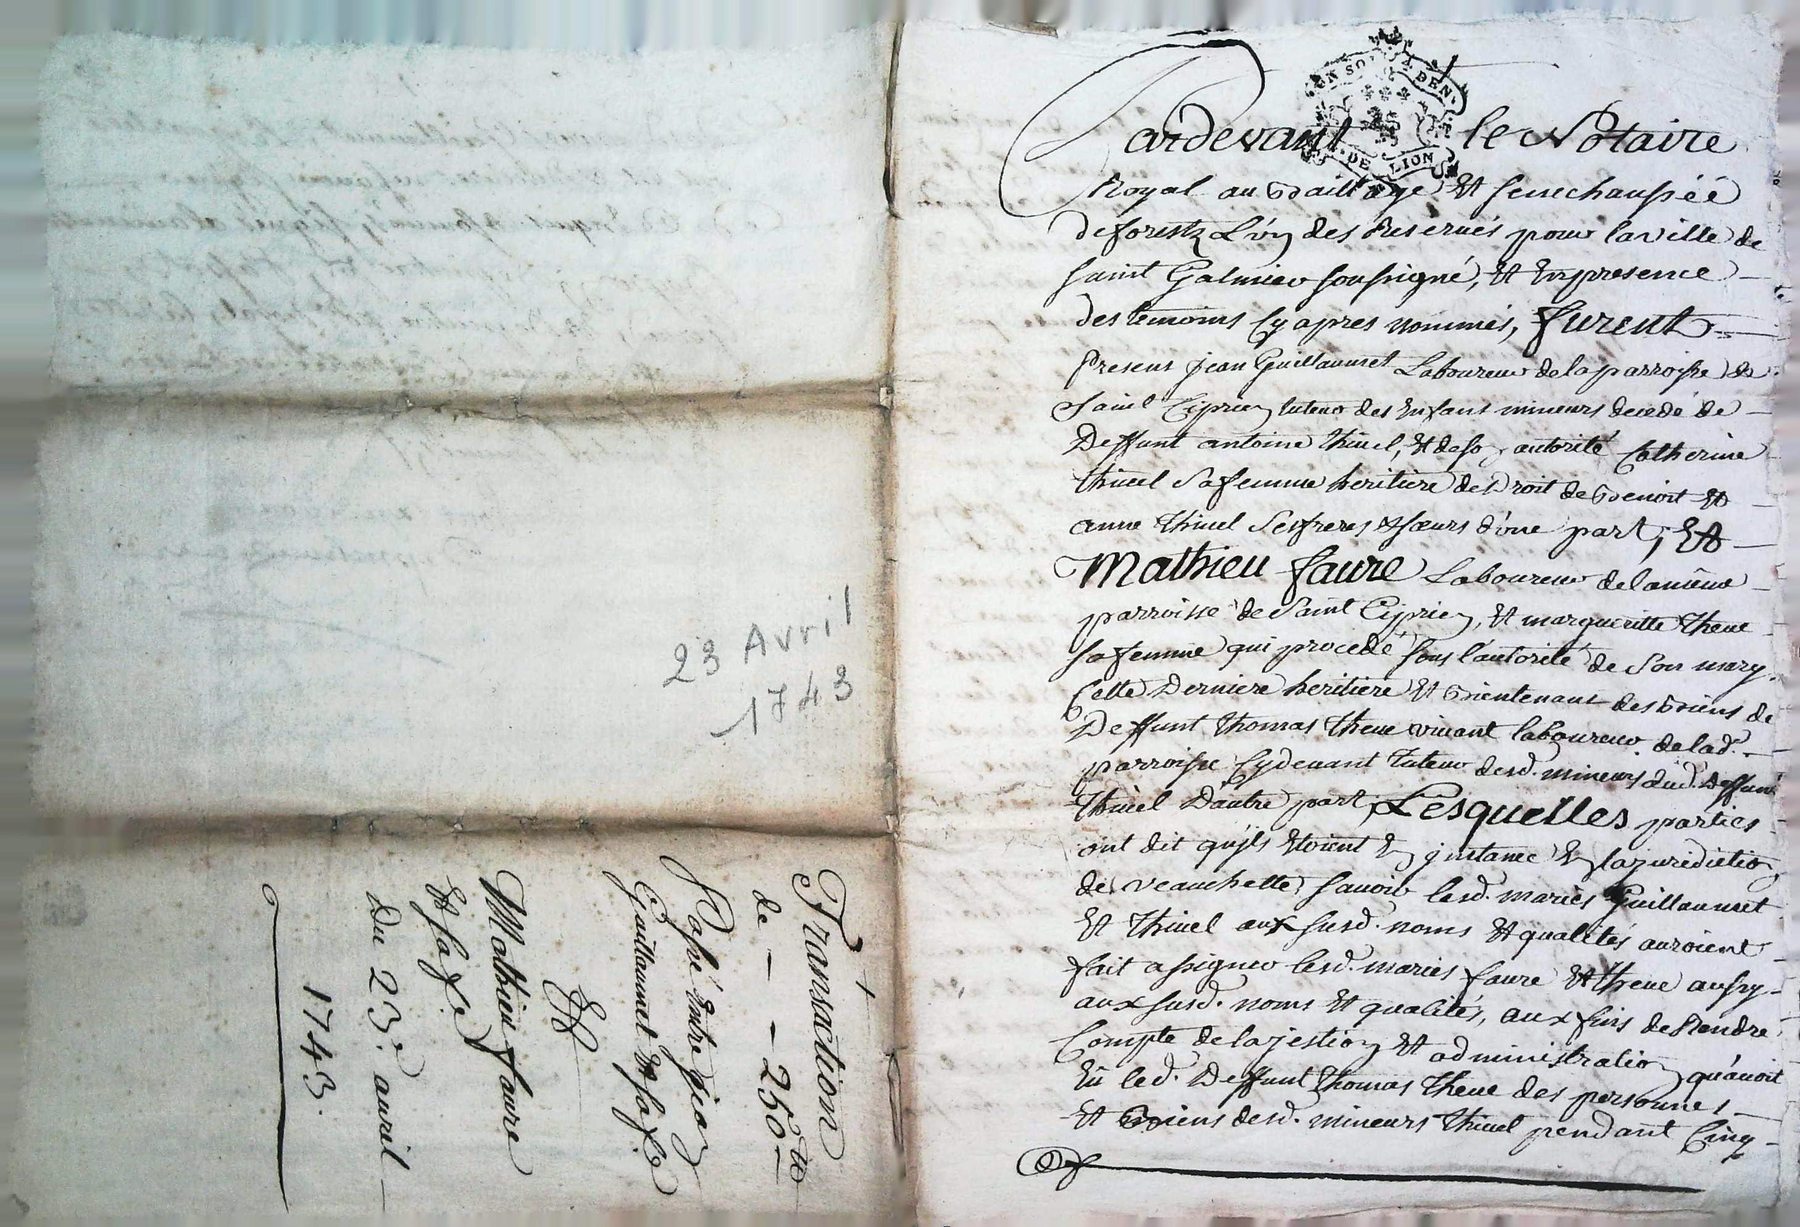 23 Avril
1743
Transaction
de — — 250 ##
Passé entre Jean
Guillaumet & sa f.e
Et
Mathieu faure
& sa f.e
Du 23.e avril —
1743.
UN SOL 4 DEN.
DE LION
Pardevant le Notaire
Royal au Bailliage Et senechausséé
deforestz L'un des Reservés pour la ville de
saint Galmier soussigné, Et En presence
des temoins Cy apres nommés, furent
Presens jean Guillaumet Laboureur de la parroisse de
Saint Ciprien tuteur des Enfans mineurs de
Deffunt antoine thivel, Et de son autorité Catherine
thivel Sa femme heritiere de Droit de Benoit Et
anne thivel Ses freres & sœurs d'une part, Et
Mathieu faure Laboureur de la même
parroisse de Saint Ciprien, Et margueritte theve
sa femme qui procede sous l'autorité de Son mary,
Cette Derniere heritiere Et Bientenant des Biens de
Deffunt thomas theve vivant laboureur de lad.e
parroisse Cydevant tuteur desd. mineurs dud. Deffunt
thivel D'autre part, Lesquelles parties
ont dit qu'ils Etoient En jnstance En la jurediction
de veauchette, savoir lesd. mariés Guillaumet
Et thivel aux susd. noms & qualités auroient
fait assigner lesd. mariés faure Et theve aussy
aux susd. noms Et qualités, aux fins de Rendre
Compte de la jestion Et administration qu'avoit
Eü led. Deffunt thomas theve des personnes
Et Biens desd. mineurs thivel pendant Cinq